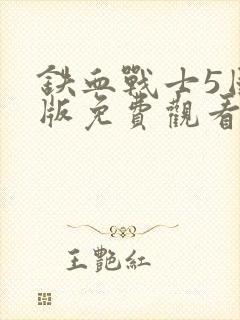 鉄血戰士5
版免費觀看
王艷紅